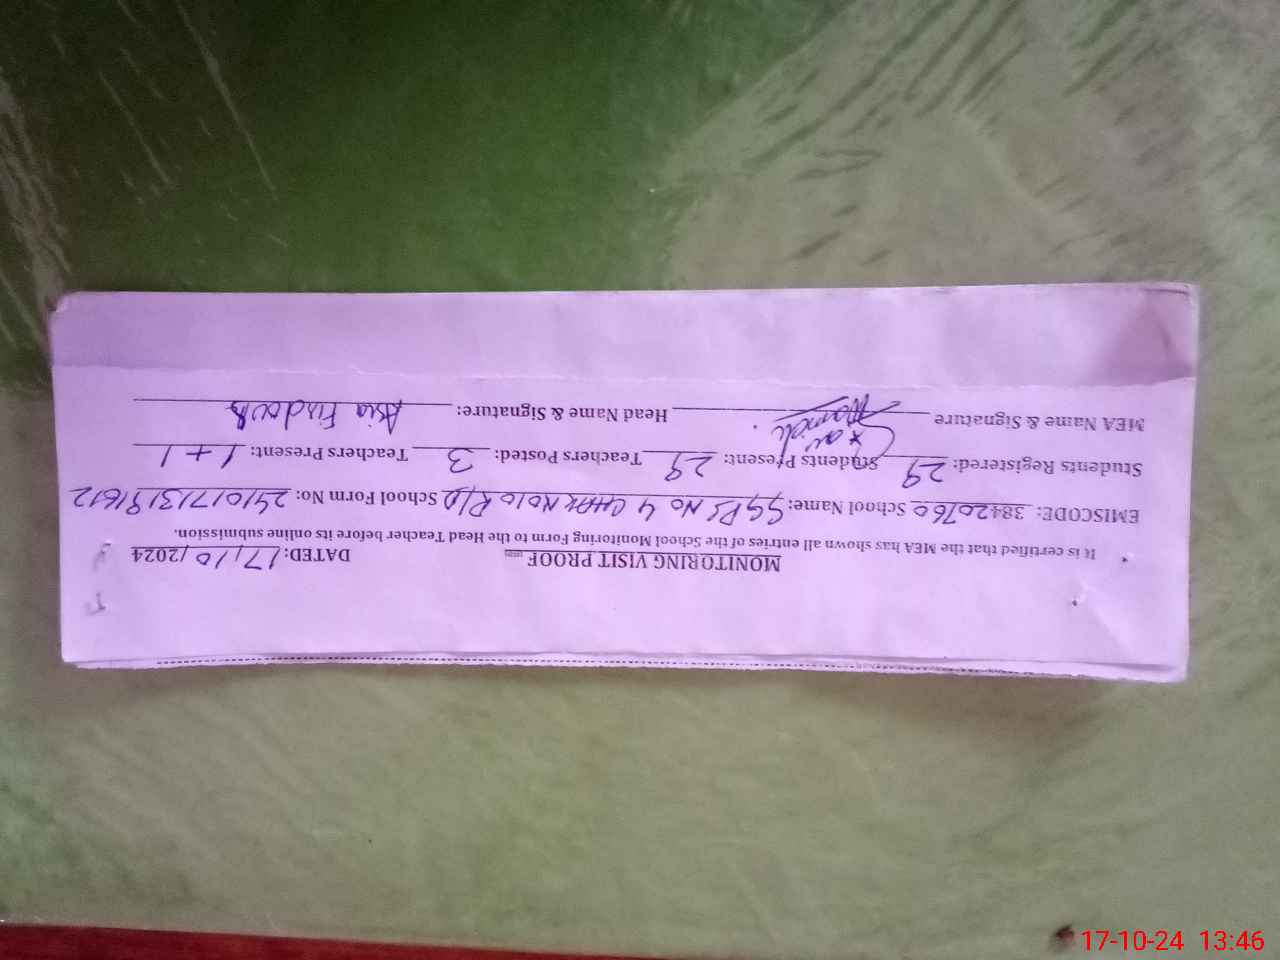 MONITORING VISIT PROOF DATED: 17/10/2024
It is certified that the MEA has shown all entries of the School Monitoring Form to the Head Teacher before its online submission.
EMISCODE: 38420760 School Name: GGPS No 4 CHAK NO 10 R/D School Form No:
Students Registered: 29 Students Present: 29 Teachers Posted: 3 Teachers Present: 1+1
MEA Name & Signature Head Name & Signature: Asia Firdous
17-10-24 13:46